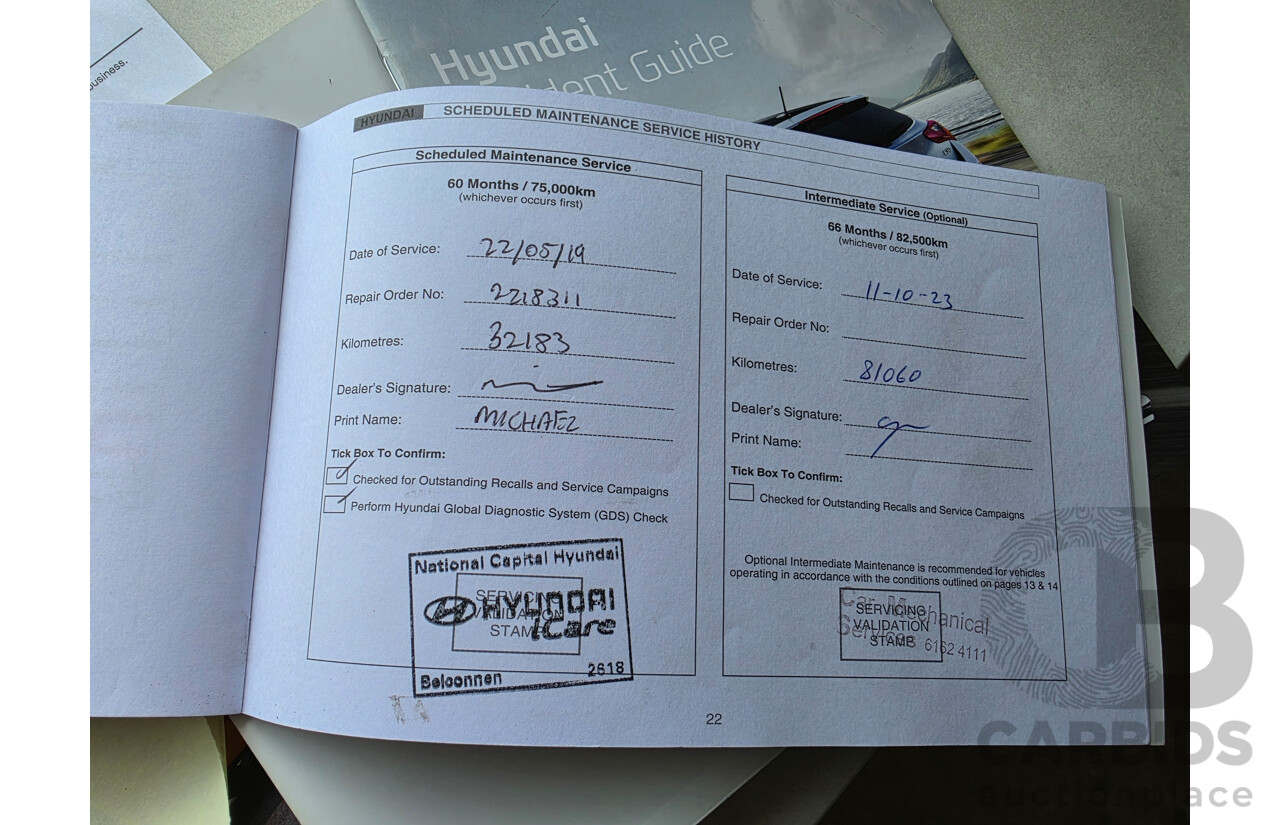 business.
Hyundai
dent Guide
HYUNDAI
SCHEDULED MAINTENANCE SERVICE HISTORY
Scheduled Maintenance Service
60 Months / 75,000km
(whichever occurs first)
Date of Service: 22/05/19
Repair Order No: 2218311
Kilometres: 32183
Dealer's Signature:
Print Name: MICHAEL
Tick Box To Confirm:
Checked for Outstanding Recalls and Service Campaigns
Perform Hyundai Global Diagnostic System (GDS) Check
National Capital Hyundai
SERVICING
VALIDATION
STAMP
HYUNDAI
iCare
Belconnen 2618
Intermediate Service (Optional)
66 Months / 82,500km
(whichever occurs first)
Date of Service: 11-10-23
Repair Order No:
Kilometres: 81060
Dealer's Signature:
Print Name:
Tick Box To Confirm:
Checked for Outstanding Recalls and Service Campaigns
Optional Intermediate Maintenance is recommended for vehicles
operating in accordance with the conditions outlined on pages 13 & 14
SERVICING
VALIDATION
STAMP
Car Mechanical
Services 6162 4111
22
CB
CARBIDS
auctionplace